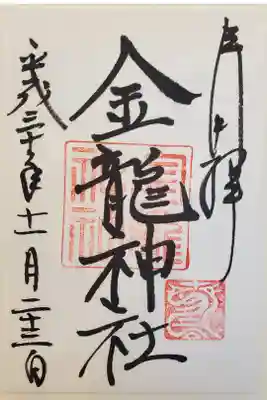 奉拝
金龍神社
平成三十年十一月二十三日